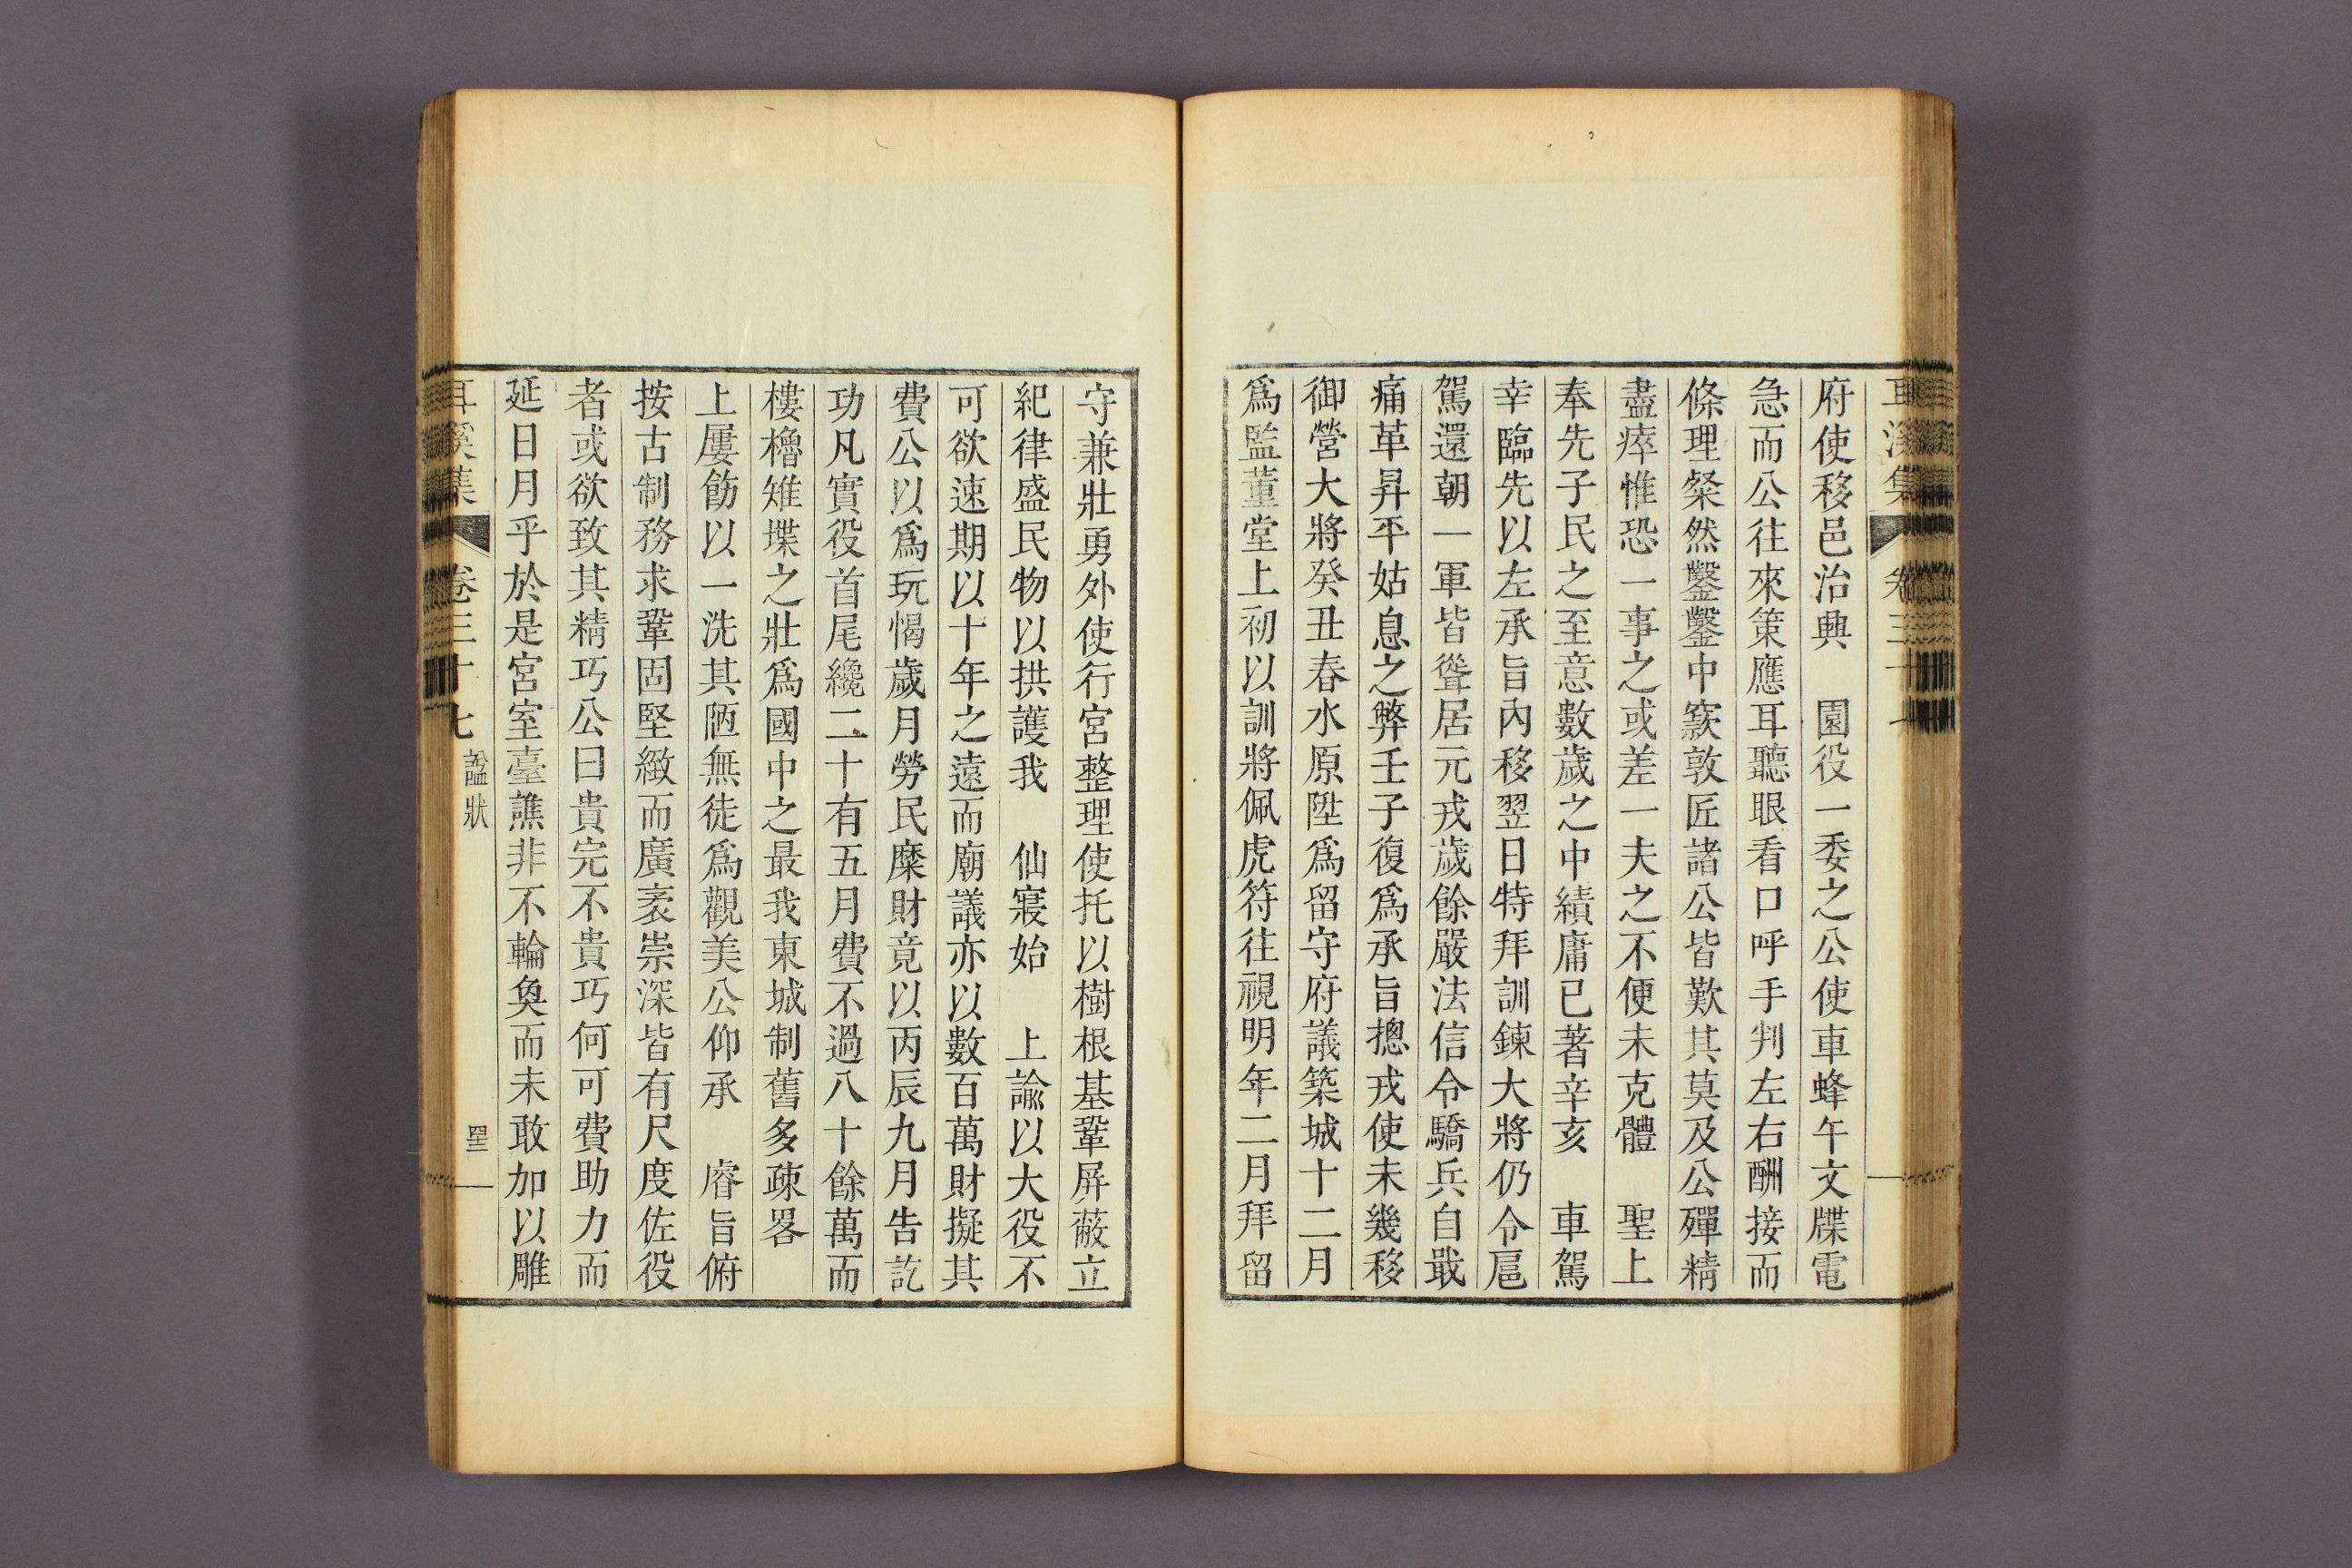 府使移邑治興　園役一委之公使車蜂午文牒電
急而公往來策應耳聽眼看口呼手判左右酬接而
條理粲然鑿鑿中窾敦匠諸公皆歎其莫及公殫精
盡瘁惟恐一事之或差一夫之不便未克體　聖上
奉先子民之至意數歲之中績庸已著辛亥　車駕
幸臨先以左承旨內移翌日特拜訓鍊大將仍令扈
駕還朝一軍皆聳居元戎歲餘嚴法信令驕兵自戢
痛革昇平姑息之弊壬子復爲承旨摠戎使未幾移
御營大將癸丑春水原陞爲留守府議築城十二月
爲監董堂上初以訓將佩虎符往視明年二月拜留
守兼壯勇外使行宮整理使托以樹根基鞏屏蔽立
紀律盛民物以拱護我　仙寢始　上諭以大役不
可欲速期以十年之遠而廟議亦以數百萬財擬其
費公以爲玩愒歲月勞民糜財竟以丙辰九月告訖
功凡實役首尾纔二十有五月費不過八十餘萬而
樓櫓雉堞之壯爲國中之最我東城制舊多疎畧
上屢飭以一洗其陋無徒爲觀美公仰承　睿旨俯
按古制務求鞏固堅緻而廣袤崇深皆有尺度佐役
者或欲致其精巧公曰貴完不貴巧何可費助力而
延日月乎於是宮室臺譙非不輪奐而未敢加以雕
耳溪集　卷三十七　諡狀